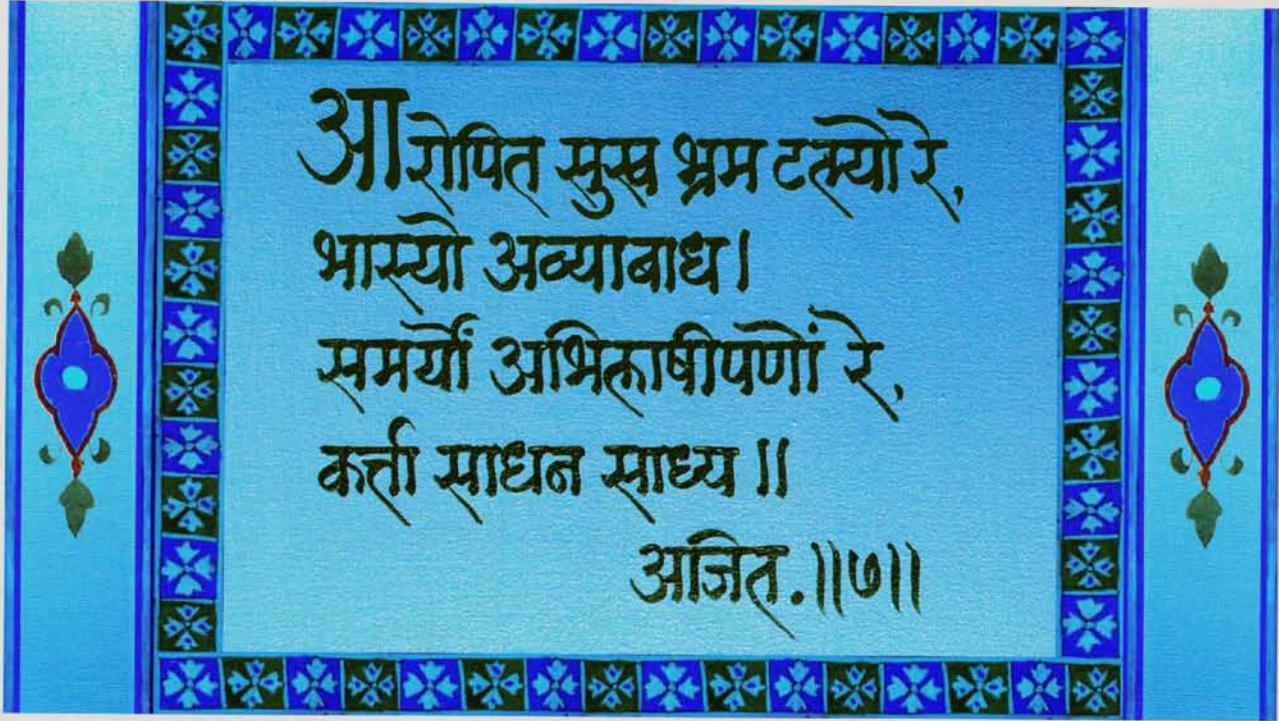 आरोपित सुख भ्रम टल्यो रे,
भास्यो अव्याबाध।
समर्यों अभिलाषीपणों रे,
कर्त्ता साधन साध्य॥
अजित.॥७॥